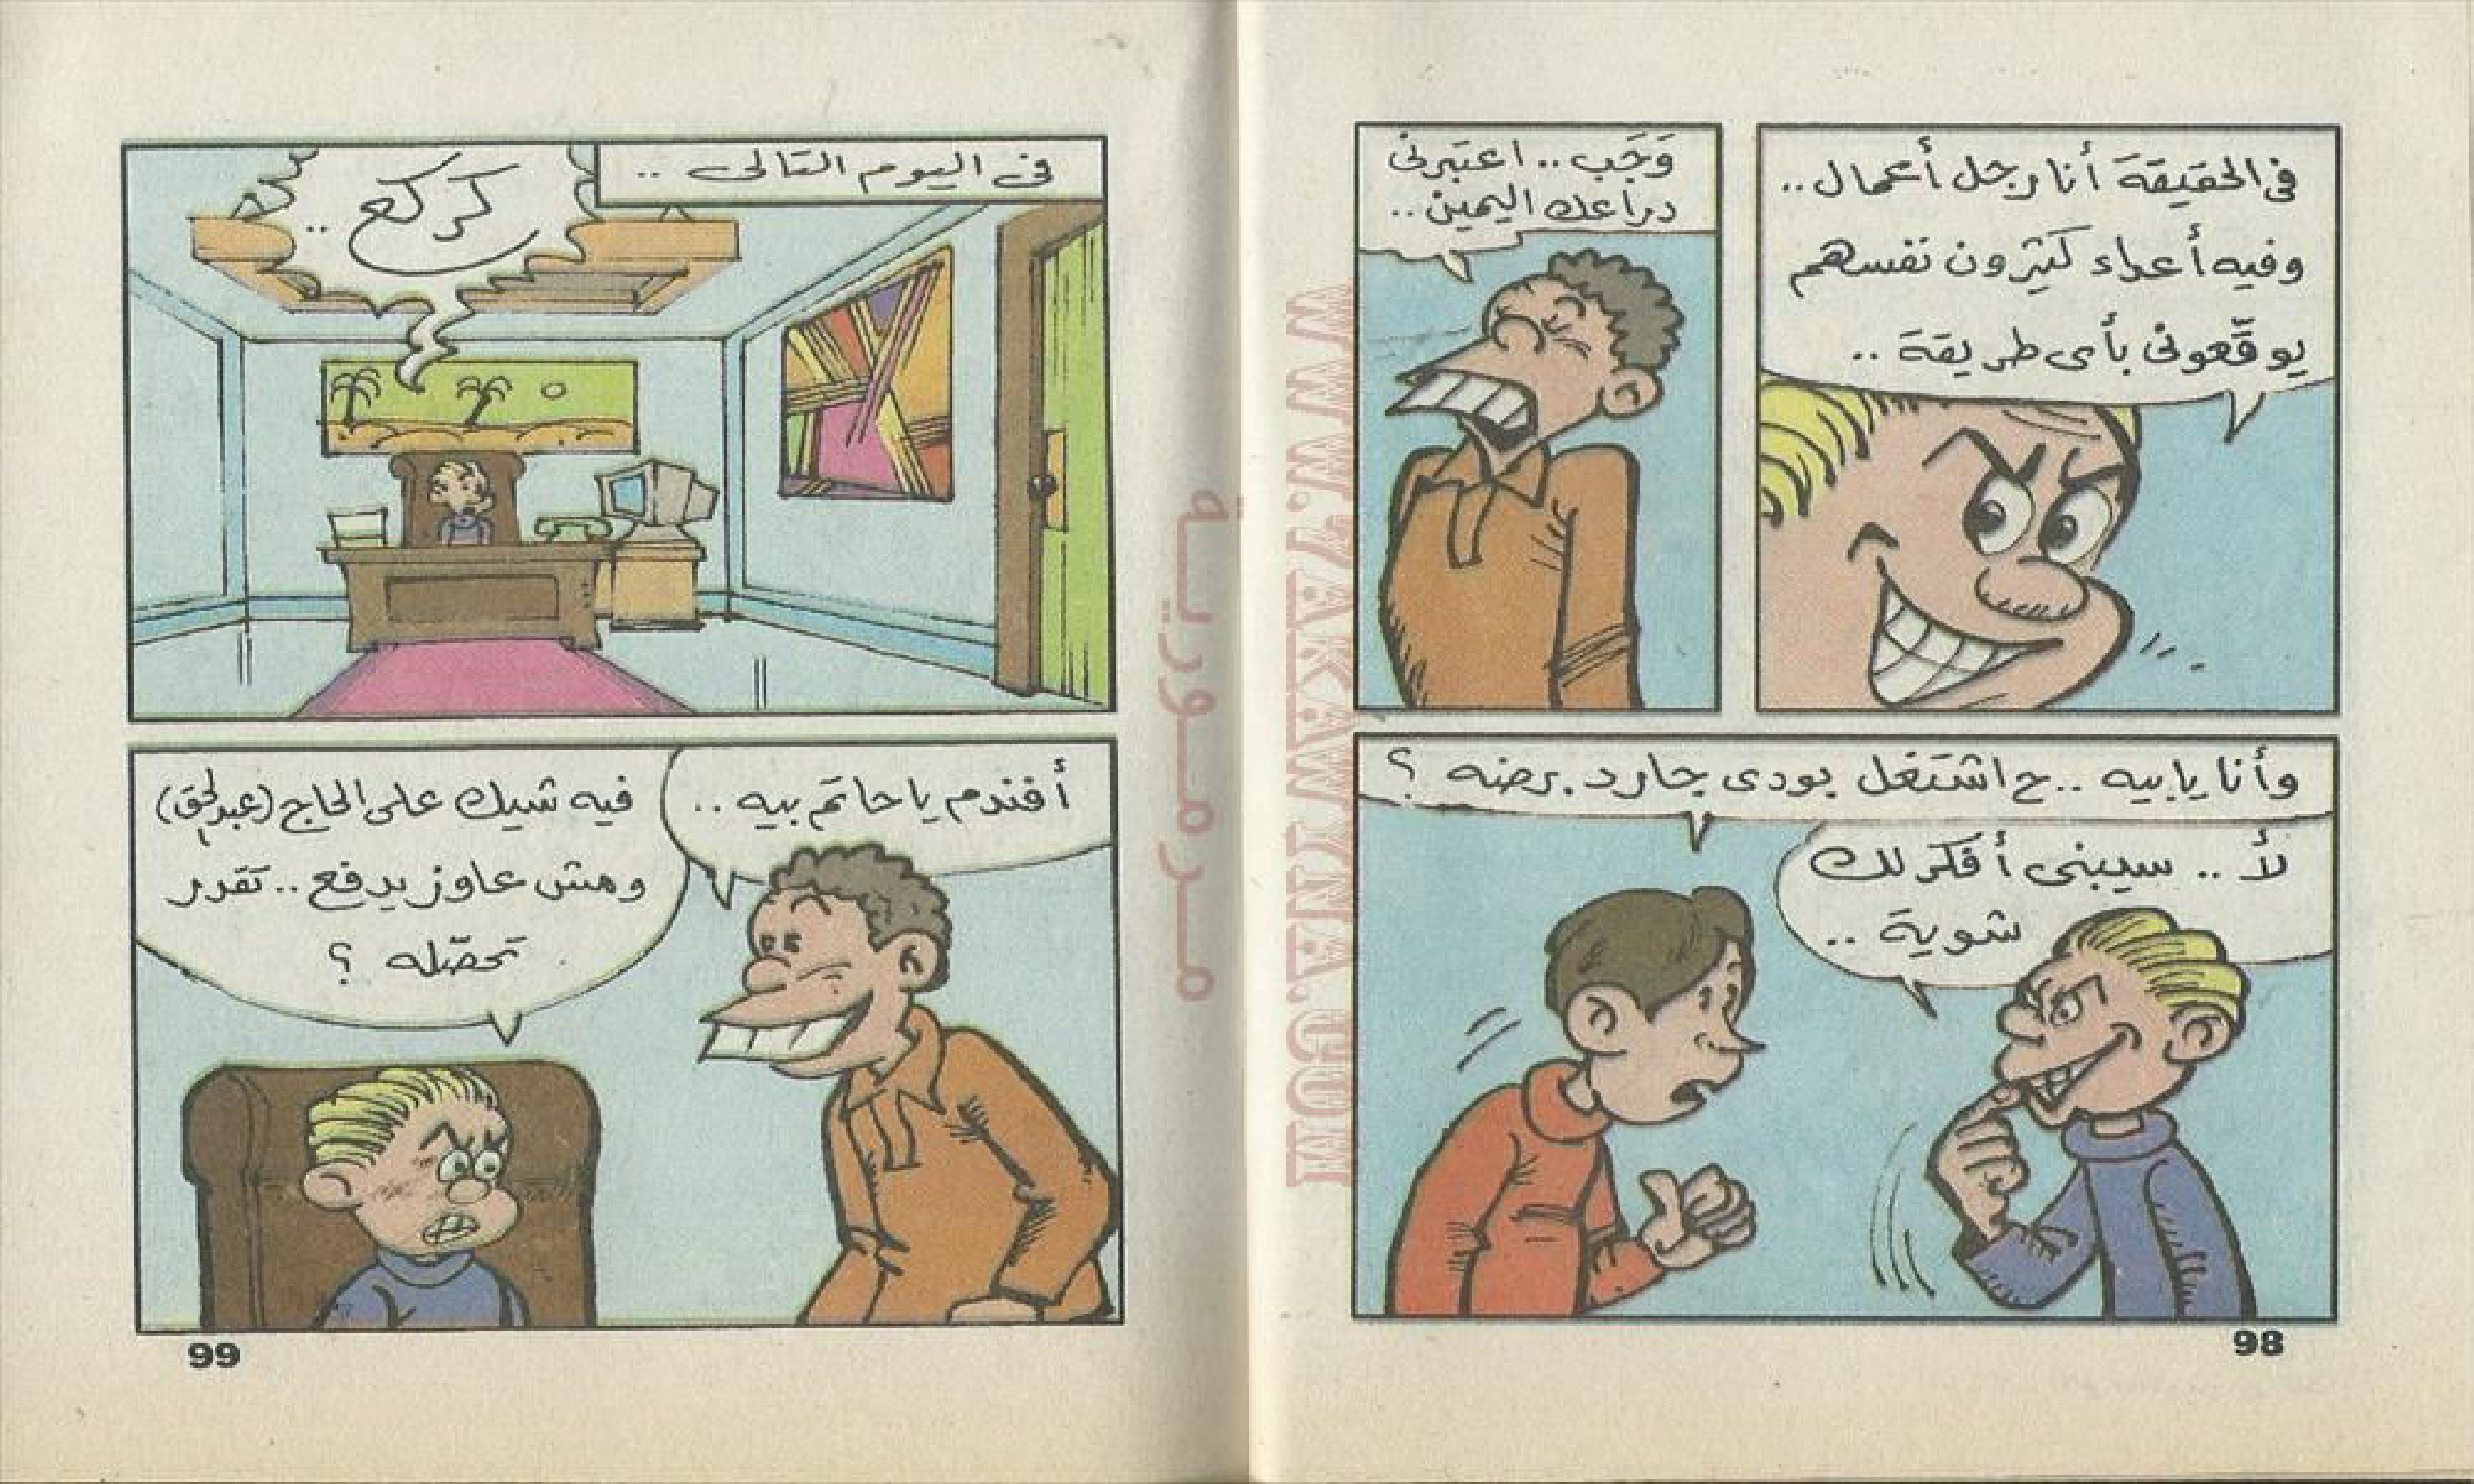 فى الحقيقة أنا رجل أعمال ..
وفيه أعداء كتيرون نفسهم
يوقّعونى بأى طريقة ..
وَجَب .. اعتبرنى
دراعك اليمين ..
وأنا يا بيه .. ح اشتغل بودى جارد برضه ؟
لأ .. سيبنى أفكر لك
شوية ..
98
فى اليوم التالى ..
كركع ..
أفندم يا حاتم بيه ..
فيه شيك على الحاج (عبدالحق)
ومش عاوز يدفع .. تقدر
تحصّله ؟
99
مرمورية
WWW.VAKAWINA.COM